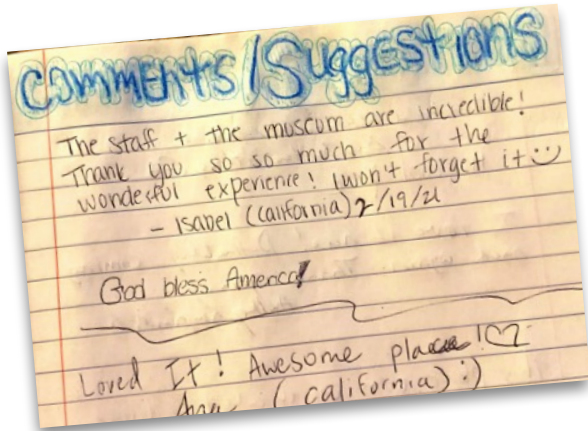 Comments/Suggestions
The staff + the museum are incredible!
Thank you so so much for the
wonderful experience! I won't forget it :)
- Isabel (California) 2/19/21
God bless America!
Loved It! Awesome place!♡
(California) :)